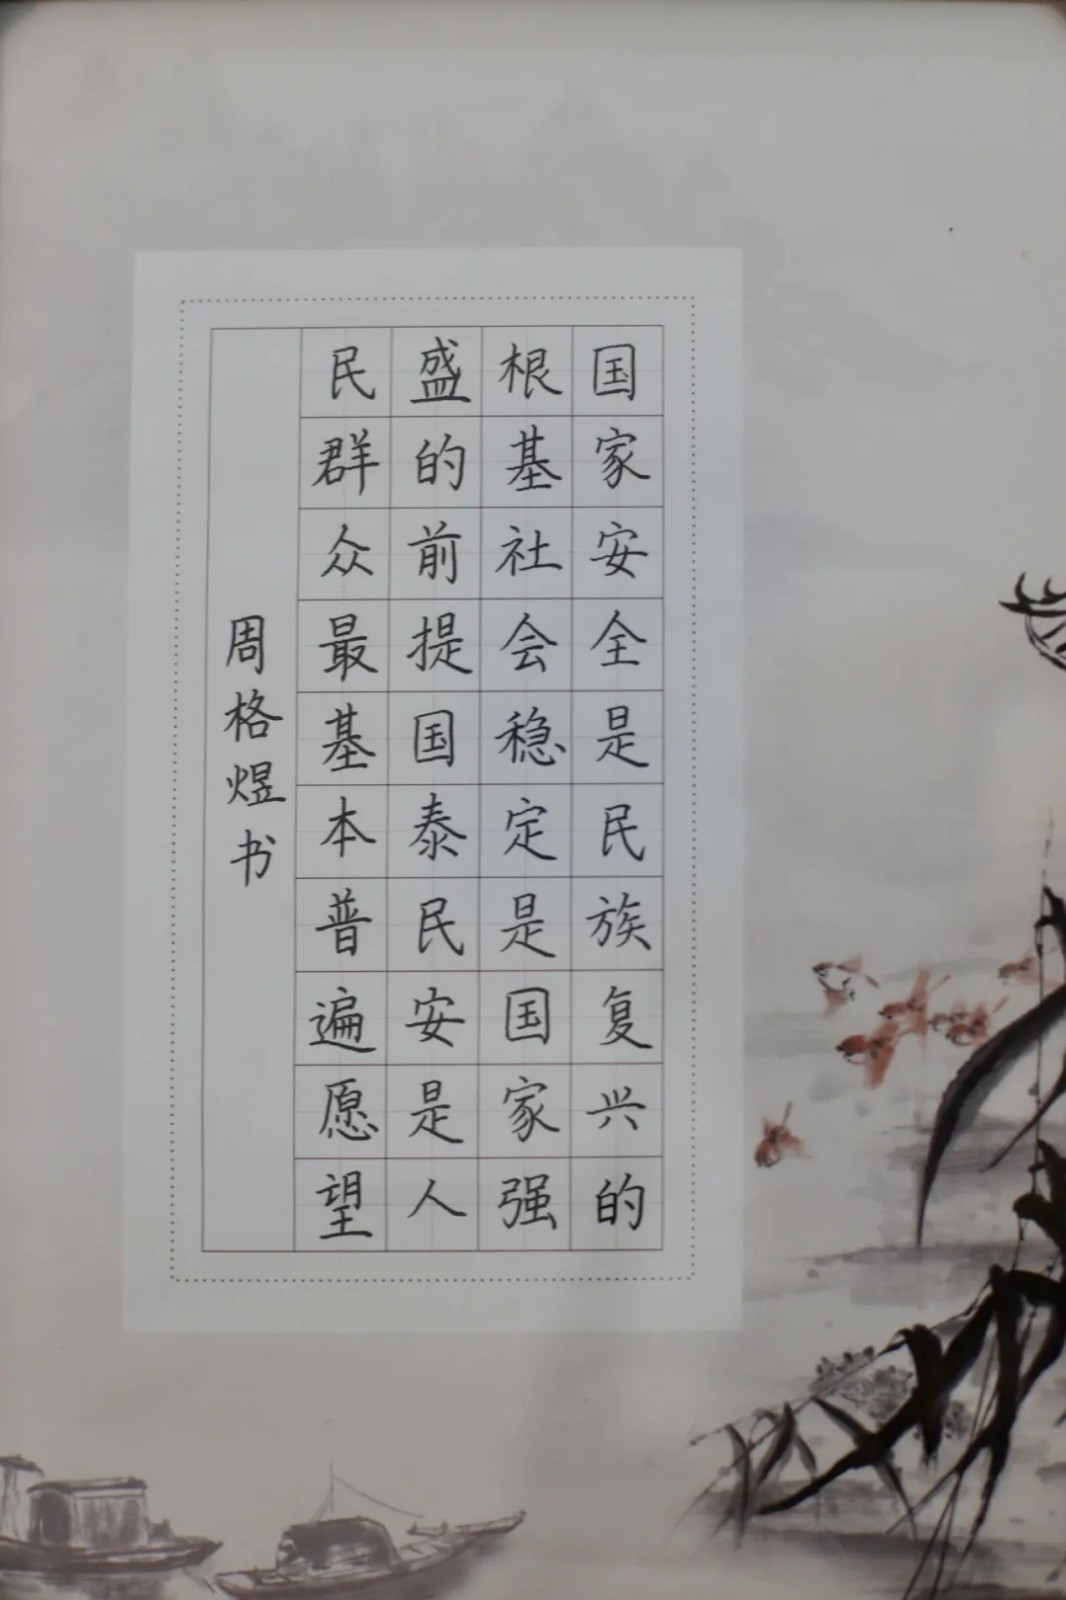 国家安全是民族复兴的
根基社会稳定是国家强
盛的前提国泰民安是人
民群众最基本普遍愿望
周格煜书